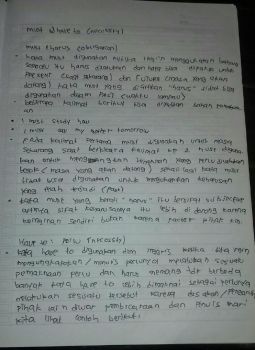 must & have to (necessity)
must & harus (obligasion)
kata must digunakan ketika ingin mengungkapkan bahwa
sesuatu itu harus dilakukan dan hanya bisa dipakai untuk
present (saat sekarang) dan future (masa yang akan
datang) kata must yang diartikan "harus" tidak bisa
digunakan dalam past (waktu lampau)
beberapa kalimat berikut bisa dijadikan sebuah
an
I must study hau
I must call my mother tomorrow
Pada kalimat pertama must digunakan untuk masa
sekarang saat berbicara kalimat ke 2 must diguna
kan untuk yang perlu dilakukan
besok (masa yang akan datang) sekali lagi kata must
tidak bisa digunakan untuk mengungkapkan keharusan
yang telah terjadi (past)
kata must yang berarti "harus" itu bersifat subjective
artinya sifat keharusannya itu lebih di dorong karna
keinginan sendiri bukan karna faktor pihak lain.
Have to : perlu (necessity)
kata have to digunakan dlm inggris ketika kita ingin
mengungkapkan / menulis perlunya melakukan sesuatu
pemaknaan perlu dan harus memang tdk berbeda
banyak kata have to lebih dimaknai sebagai perlunya
melakukan sesuatu tersebut karena desakan / pengaruh
pihak lain diluar pembicaraan dan penulis mari
kita lihat contoh berikut: